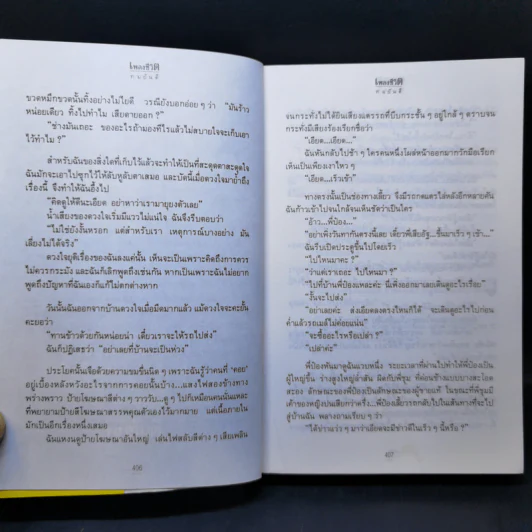 เพลงชีวิต
ทมยันตี
ขวดหมึกขวดนั้นทิ้งอย่างไม่ไยดี วรณียังบอกอ่อย ๆ ว่า "มันร้าว
หน่อยเดียว ทิ้งไปทำไม เสียดายออก ?"
"ช่างมันเถอะ ของอะไรถ้ามองทีไรแล้วไม่สบายใจจะเก็บเอา
ไว้ทำไม ?"
สำหรับฉันของสิ่งใดที่เก็บไว้แล้วจะทำให้เป็นที่สะดุดตาสะดุดใจ
ฉันมักจะเอาไปซุกไว้ให้ลับหูลับตาเสมอ และบัดนี้เมื่อดวงใจมาย้ำถึง
เรื่องนี้ จึงทำให้ฉันอึ้งไป
"คิดดูให้ดีนะเอียด อย่าหาว่าเรามายุยงตัวเลย"
น้ำเสียงของดวงใจเริ่มมีแววไม่แน่ใจ ฉันจึงรีบตอบว่า
"ไม่ใช่ยังงั้นหรอก แต่สำหรับเรา เหตุการณ์บางอย่าง มัน
เลี่ยงไม่ได้จริง"
ดวงใจยุติเรื่องของฉันลงแค่นั้น เห็นจะเป็นเพราะคิดถึงการควร
ไม่ควรกระมัง และฉันก็เลิกพูดถึงเช่นกัน หากเป็นเพราะฉันไม่อยาก
พูดถึงปัญหาที่ฉันเองก็แก้ไม่ตกต่างหาก
วันนั้นฉันออกจากบ้านดวงใจเมื่อมืดมากแล้ว แม้ดวงใจจะคะยั้น
คะยอว่า
"ทานข้าวด้วยกันหน่อยน่า เดี๋ยวเราจะให้รถไปส่ง"
ฉันก็ปฏิเสธว่า "อย่าเลยที่บ้านจะเป็นห่วง"
ประโยคนั้นเจือด้วยความขมขื่นนิด ๆ เพราะฉันรู้ว่าคนที่ "คอย"
อยู่เบื้องหลังหวังอะไรจากการคอยนั้นบ้าง...แสงไฟสองข้างทาง
พร่างพราว ป้ายโฆษณาสีต่าง ๆ วาววับ...ดู ๆ ไปก็เหมือนคนนั่นแหละ
ที่พยายามป้ายสีโฆษณาสรรพคุณตัวเองไว้มากมาย แต่เนื้อภายใน
มักเป็นอีกเรื่องหนึ่งเสมอ
ฉันแหงนดูป้ายโฆษณาอันใหญ่ เล่นไฟสลับสีต่าง ๆ เสียเพลิน
406
เพลงชีวิต
ทมยันตี
จนกระทั่งไม่ได้ยินเสียงแตรรถที่บีบกระชั้น ๆ อยู่ใกล้ ๆ ตราบจน
กระทั่งมีเสียงร้องเรียกชื่อว่า
"เอียด...เอียด..."
ฉันหันกลับไปช้า ๆ ใครคนหนึ่งโผล่หน้าออกมากวักมือเรียก
เห็นเป็นเพียงเงาไหว ๆ
"เอียด...เร็วเข้า"
ทางตรงนั้นเป็นช่องทางเลี้ยว จึงมีรถกดแตรไล่หลังอีกหลายคัน
ฉันก้าวเข้าไปจนใกล้จนเห็นชัดว่าเป็นใคร
"อ้าว...พี่ป้อง..."
"อย่าเพิ่งวันทากันตรงนี้เลย เดี๋ยวพี่เสียอัฐ...ขึ้นมาเร็ว ๆ เข้า..."
ฉันรีบเปิดประตูขึ้นไปโดยเร็ว
"ไปไหนมาคะ ?"
"ว่าแต่เราเถอะ ไปไหนมา ?"
"ไปที่บ้านพี่ป้องแหละค่ะ นี่เพิ่งออกมาเลยเดินดูอะไรเรื่อย"
"งั้นจะไปส่ง"
"อย่าเลยค่ะ ส่งเอียดลงตรงไหนก็ได้ จะเดินดูอะไรไปก่อน
ค่ำแล้วรถเมล์ไม่ค่อยแน่น"
"จะซื้ออะไรหรือเปล่า ?"
"เปล่าค่ะ"
พี่ป้องหันมาดูฉันแวบหนึ่ง ระยะเวลาที่ผ่านไปทำให้พี่ป้องเป็น
ผู้ใหญ่ขึ้น ร่างสูงใหญ่ล่ำสัน ผิดกับพี่ชุม ที่ค่อนข้างแบบบางสะโอด
สะอง ลักษณะของพี่ป้องเป็นลักษณะของผู้ชายแท้ ในขณะที่พี่ชุมมี
เค้าของหญิงปนเสียกว่าครึ่ง...พี่ป้องเลี้ยวรถกลับไปในเส้นทางที่จะไป
สู่บ้านฉัน พลางถามเรียบ ๆ ว่า
"ได้ข่าวแว่ว ๆ มาว่าเอียดจะมีข่าวดีในเร็ว ๆ นี้หรือ ?"
407